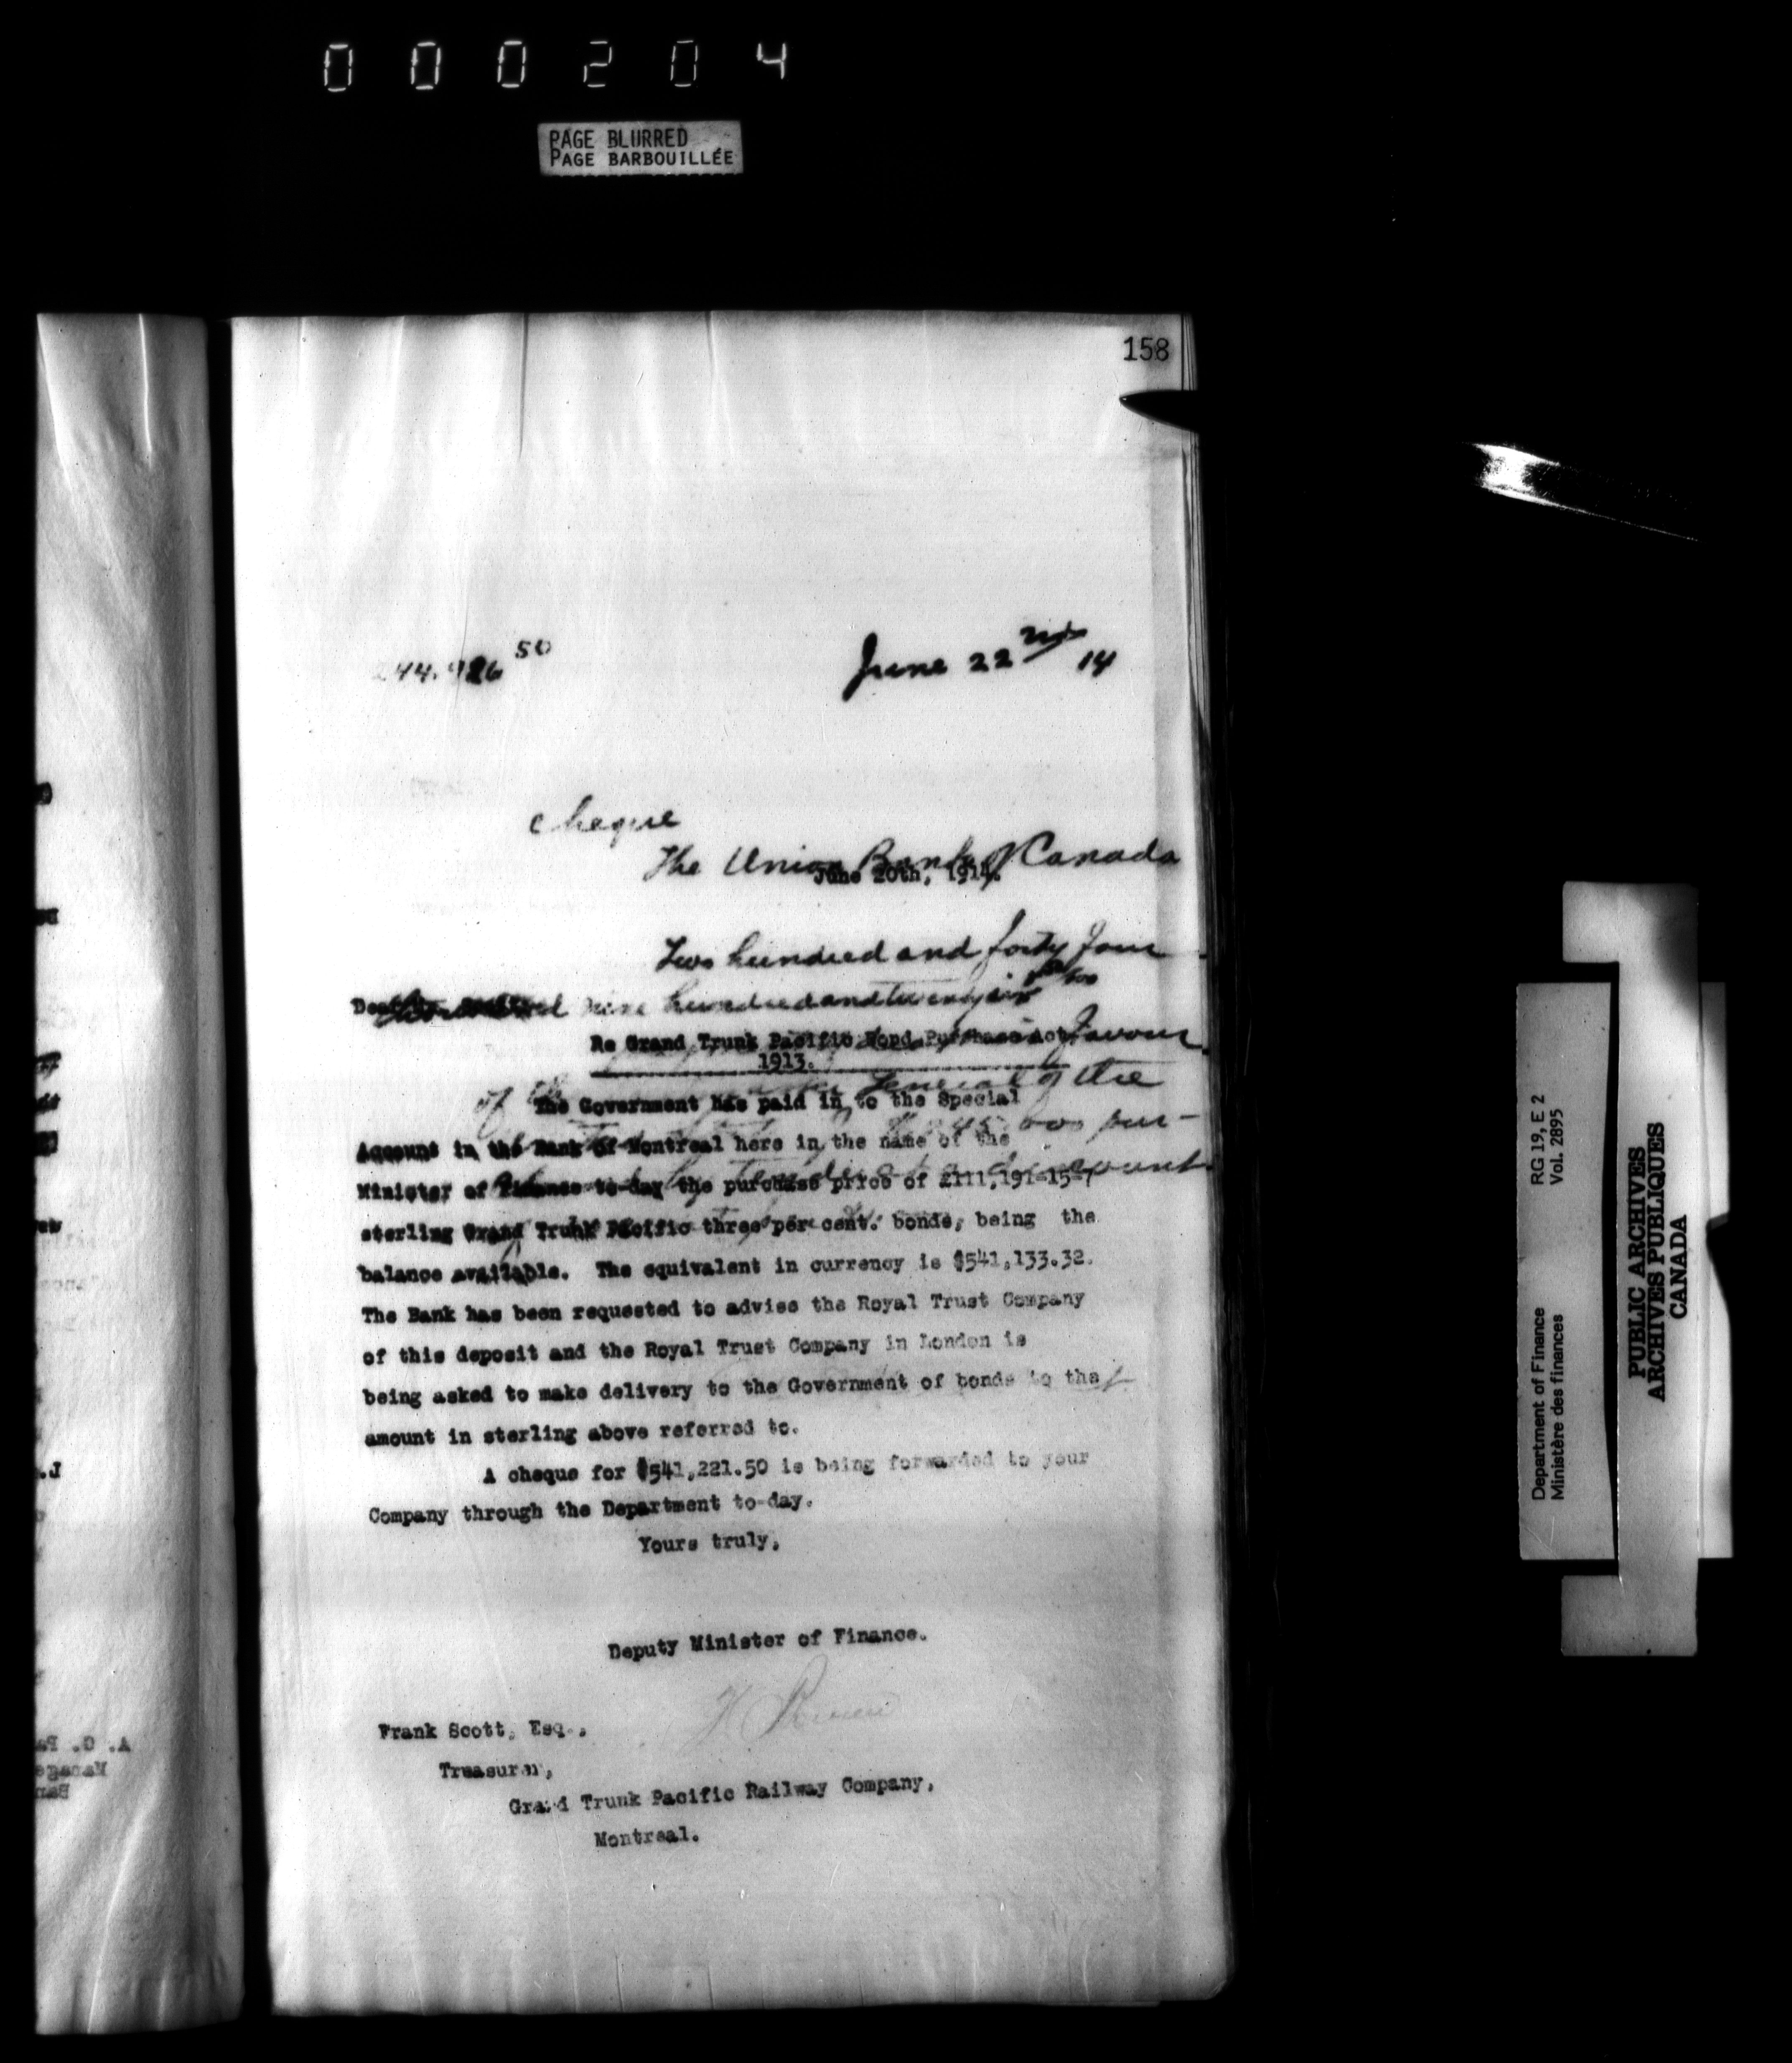 000204
PAGE BLURRED
PAGE BARBOUILLÉE
158
44.926 50
June 22nd 14
Cheque
The Union Bank of Canada
June 20th, 1914.
Two hundred and forty four
nine hundred and twenty six 50/100
Re Grand Trunk Pacific Bond Purchase Act,
favour
1913.
of the General of the
The Government has paid in to the Special
pur-
Account in the Bank of Montreal here in the name of the
account
Minister of Finance to-day the purchase price of £111,191-15-7
sterling Grand Trunk Pacific three per cent. bonds, being the
balance available. The equivalent in currency is $541,133.32.
The Bank has been requested to advise the Royal Trust Company
of this deposit and the Royal Trust Company in London is
being asked to make delivery to the Government of bonds to the
amount in sterling above referred to.
A cheque for $541,221.50 is being forwarded to your
Company through the Department to-day.
Yours truly,
Deputy Minister of Finance.
Frank Scott, Esq.,
Treasurer,
Grand Trunk Pacific Railway Company,
Montreal.
Department of Finance RG 19, E 2
Ministère des finances Vol. 2895
PUBLIC ARCHIVES
ARCHIVES PUBLIQUES
CANADA